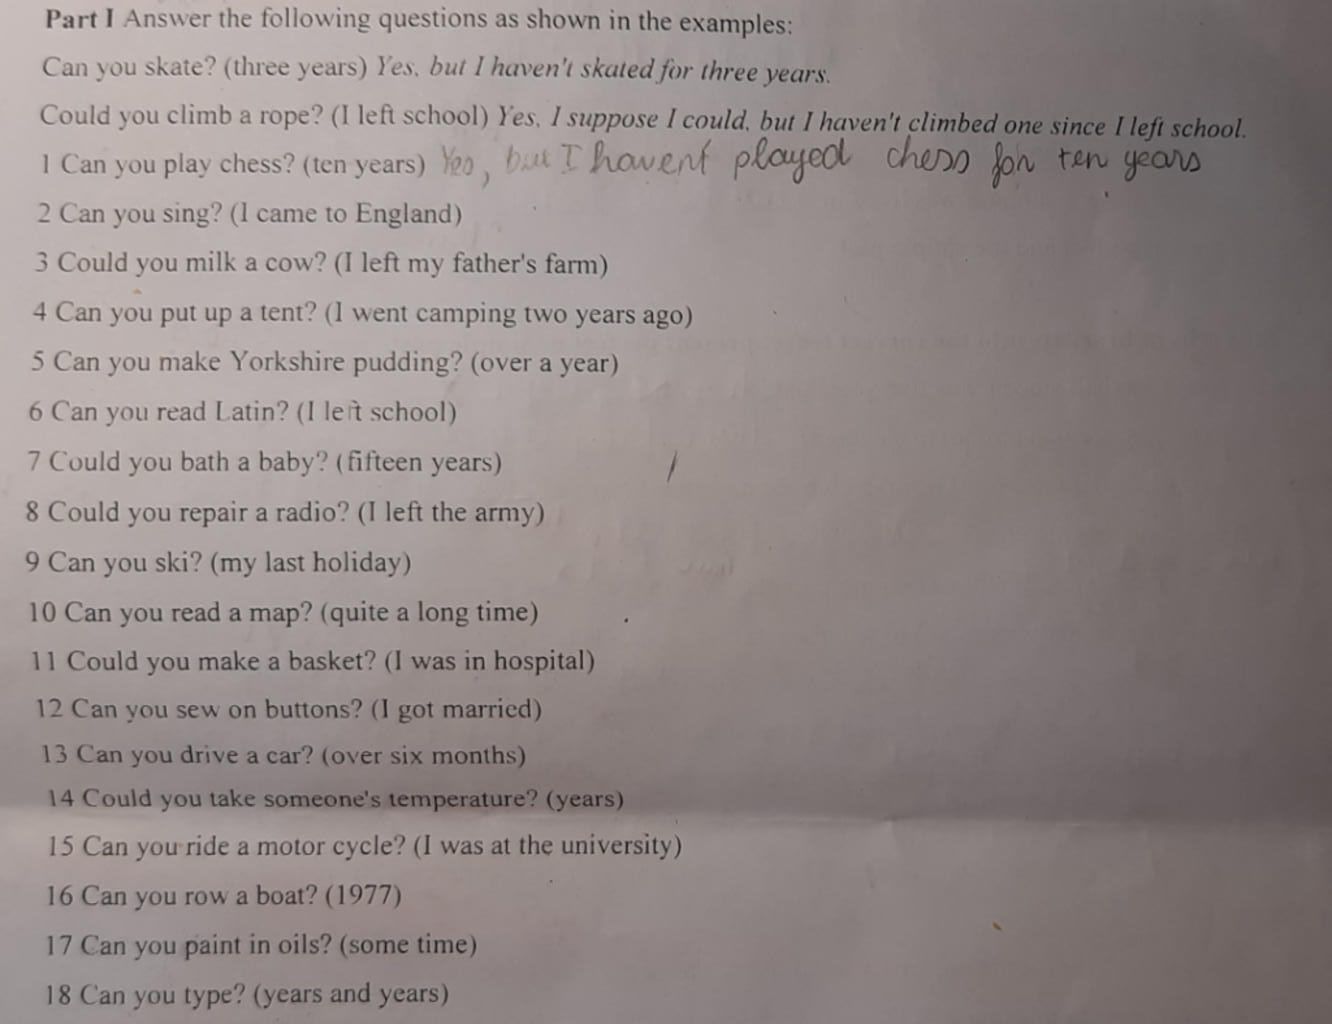 Part I Answer the following questions as shown in the examples:
Can you skate? (three years) Yes, but I haven't skated for three years.
Could you climb a rope? (I left school) Yes, I suppose I could, but I haven't climbed one since I left school.
1 Can you play chess? (ten years) Yes, but I havent played chess for ten years
2 Can you sing? (I came to England)
3 Could you milk a cow? (I left my father's farm)
4 Can you put up a tent? (I went camping two years ago)
5 Can you make Yorkshire pudding? (over a year)
6 Can you read Latin? (I left school)
7 Could you bath a baby? (fifteen years)
8 Could you repair a radio? (I left the army)
9 Can you ski? (my last holiday)
10 Can you read a map? (quite a long time)
11 Could you make a basket? (I was in hospital)
12 Can you sew on buttons? (I got married)
13 Can you drive a car? (over six months)
14 Could you take someone's temperature? (years)
15 Can you ride a motor cycle? (I was at the university)
16 Can you row a boat? (1977)
17 Can you paint in oils? (some time)
18 Can you type? (years and years)